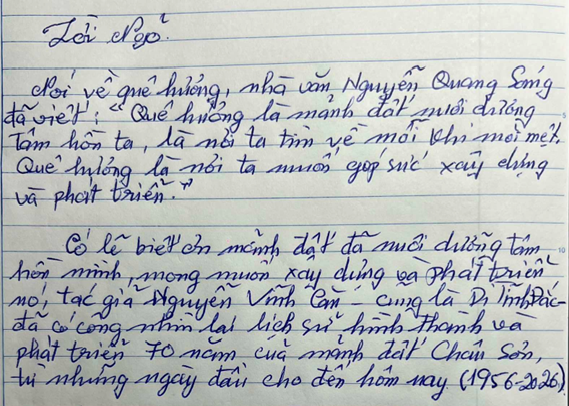 Lời Ngỏ.
Nói về quê hương, nhà văn Nguyễn Quang Sáng
đã viết: "Quê hương là mảnh đất nuôi dưỡng
tâm hồn ta, là nơi ta tìm về mỗi khi mỏi mệt.
Quê hương là nơi ta muốn góp sức xây dựng
và phát triển."
Có lẽ biết ơn mảnh đất đã nuôi dưỡng tâm
hồn mình, mong muốn xây dựng và phát triển
nó, tác giả Nguyễn Vĩnh Căn - cũng là
đã có công nhìn lại lịch sử hình thành và
phát triển 70 năm của mảnh đất Châu Sơn,
từ những ngày đầu cho đến hôm nay (1956-2026).